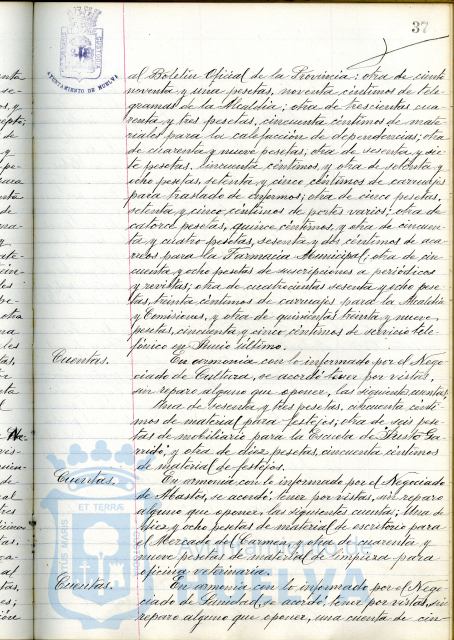 37
AYUNTAMIENTO DE HUELVA
al Boletín Oficial de la Provincia; otra de ciento
noventa y una pesetas, noventa céntimos de tele-
gramas de la Alcaldía; otra de trescientas cua-
renta y tres pesetas, cincuenta céntimos de mate-
riales para la calefacción de dependencias; otra
de cuarenta y nueve pesetas, otra de sesenta y sie-
te pesetas, cincuenta céntimos, y otra de setenta y
ocho pesetas setenta y cinco céntimos de carruajes
para traslado de enfermos; otra de cinco pesetas,
setenta y cinco céntimos de portes varios; otra de
catorce pesetas, quince céntimos, y otra de cincuen-
ta y cuatro pesetas, sesenta y dos céntimos de aca-
rreos para la Farmacia Municipal; otra de cin-
cuenta y ocho pesetas de suscripciones a periódicos
y revistas; otra de cuatrocientas sesenta y ocho pese-
tas, treinta céntimos de carruajes para la Alcaldía
y Comisiones, y otra de quinientas treinta y nueve
pesetas, cincuenta y cinco céntimos de servicio tele-
fónico en Junio último.
Cuentas. En armonía con lo informado por el Nego-
ciado de Cultura, se acordó tener por vistas,
sin reparo alguno que oponer, las siguientes cuentas:
Una de sesenta y tres pesetas, cincuenta cénti-
mos de material para festejos, otra de seis pese-
tas de mobiliario para la Escuela de Justo Ga-
rrido, y otra de diez pesetas, cincuenta céntimos
de material de festejos.
Cuentas. En armonía con lo informado por el Negociado
de Abastos, se acordó tener por vistas, sin reparo
alguno que oponer, las siguientes cuentas; Una de
diez y ocho pesetas de material de escritorio para
el Mercado del Carmen, y otra de cuarenta y
nueve pesetas de material de limpieza para
oficina veterinaria.
Cuentas. En armonía con lo informado por el Nego-
ciado de Sanidad, se acordó tener por vistas, sin
reparo alguno que oponer, una cuenta de cin-
ET TERRAE
Ayuntamiento de
HUELVA